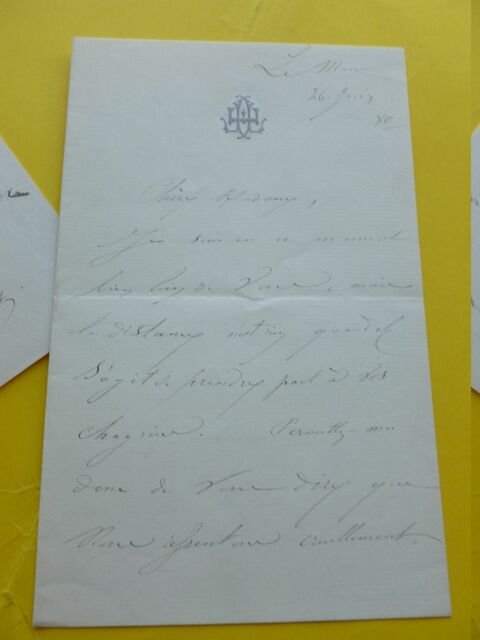 Le Mans
26 Juin
80
Chère Madame,
Je suis en ce moment
bien loin de Vous, mais
la distance n'est rien quand il
s'agit de prendre part à vos
chagrins. Permettez-moi
donc de Vous dire que
Nous ressentons cruellement,